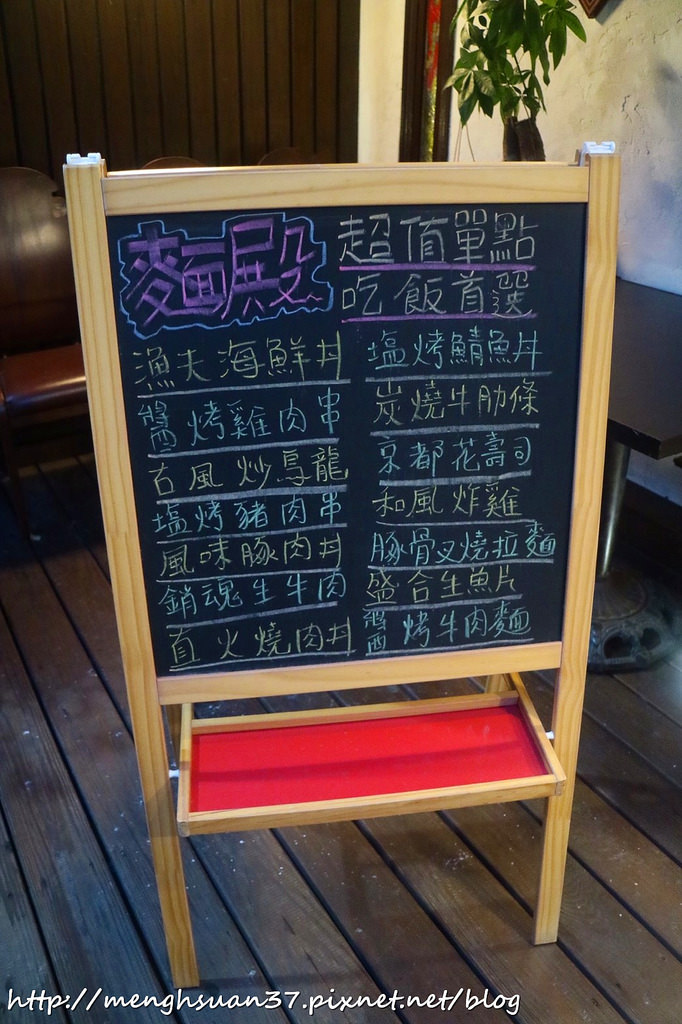 麵殿
超值單點
吃飯首選
漁夫海鮮丼
醬烤雞肉串
古風炒烏龍
塩烤豬肉串
風味豚肉丼
銷魂生牛肉
直火燒肉丼
塩烤鯖魚丼
炭燒牛肋條
京都花壽司
和風炸雞
豚骨叉燒拉麵
盛合生魚片
醬烤牛肉麵
http://menghsuan37.pixnet.net/blog